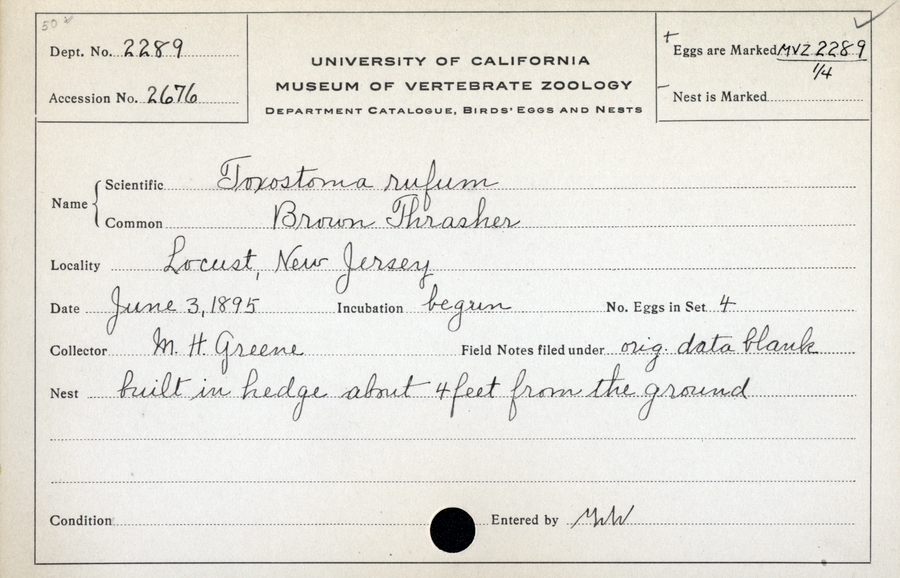 Dept. No. 2289
Accession No. 2676
UNIVERSITY OF CALIFORNIA
MUSEUM OF VERTEBRATE ZOOLOGY
DEPARTMENT CATALOGUE, BIRDS' EGGS AND NESTS
+ Eggs are Marked MVZ 2289
1/4
– Nest is Marked
Name { Scientific Toxostoma rufum
Common Brown Thrasher
Locality Locust, New Jersey
Date June 3, 1895 Incubation begun No. Eggs in Set 4
Collector M. H. Greene Field Notes filed under orig. data blank
Nest built in hedge about 4 feet from the ground
Condition Entered by